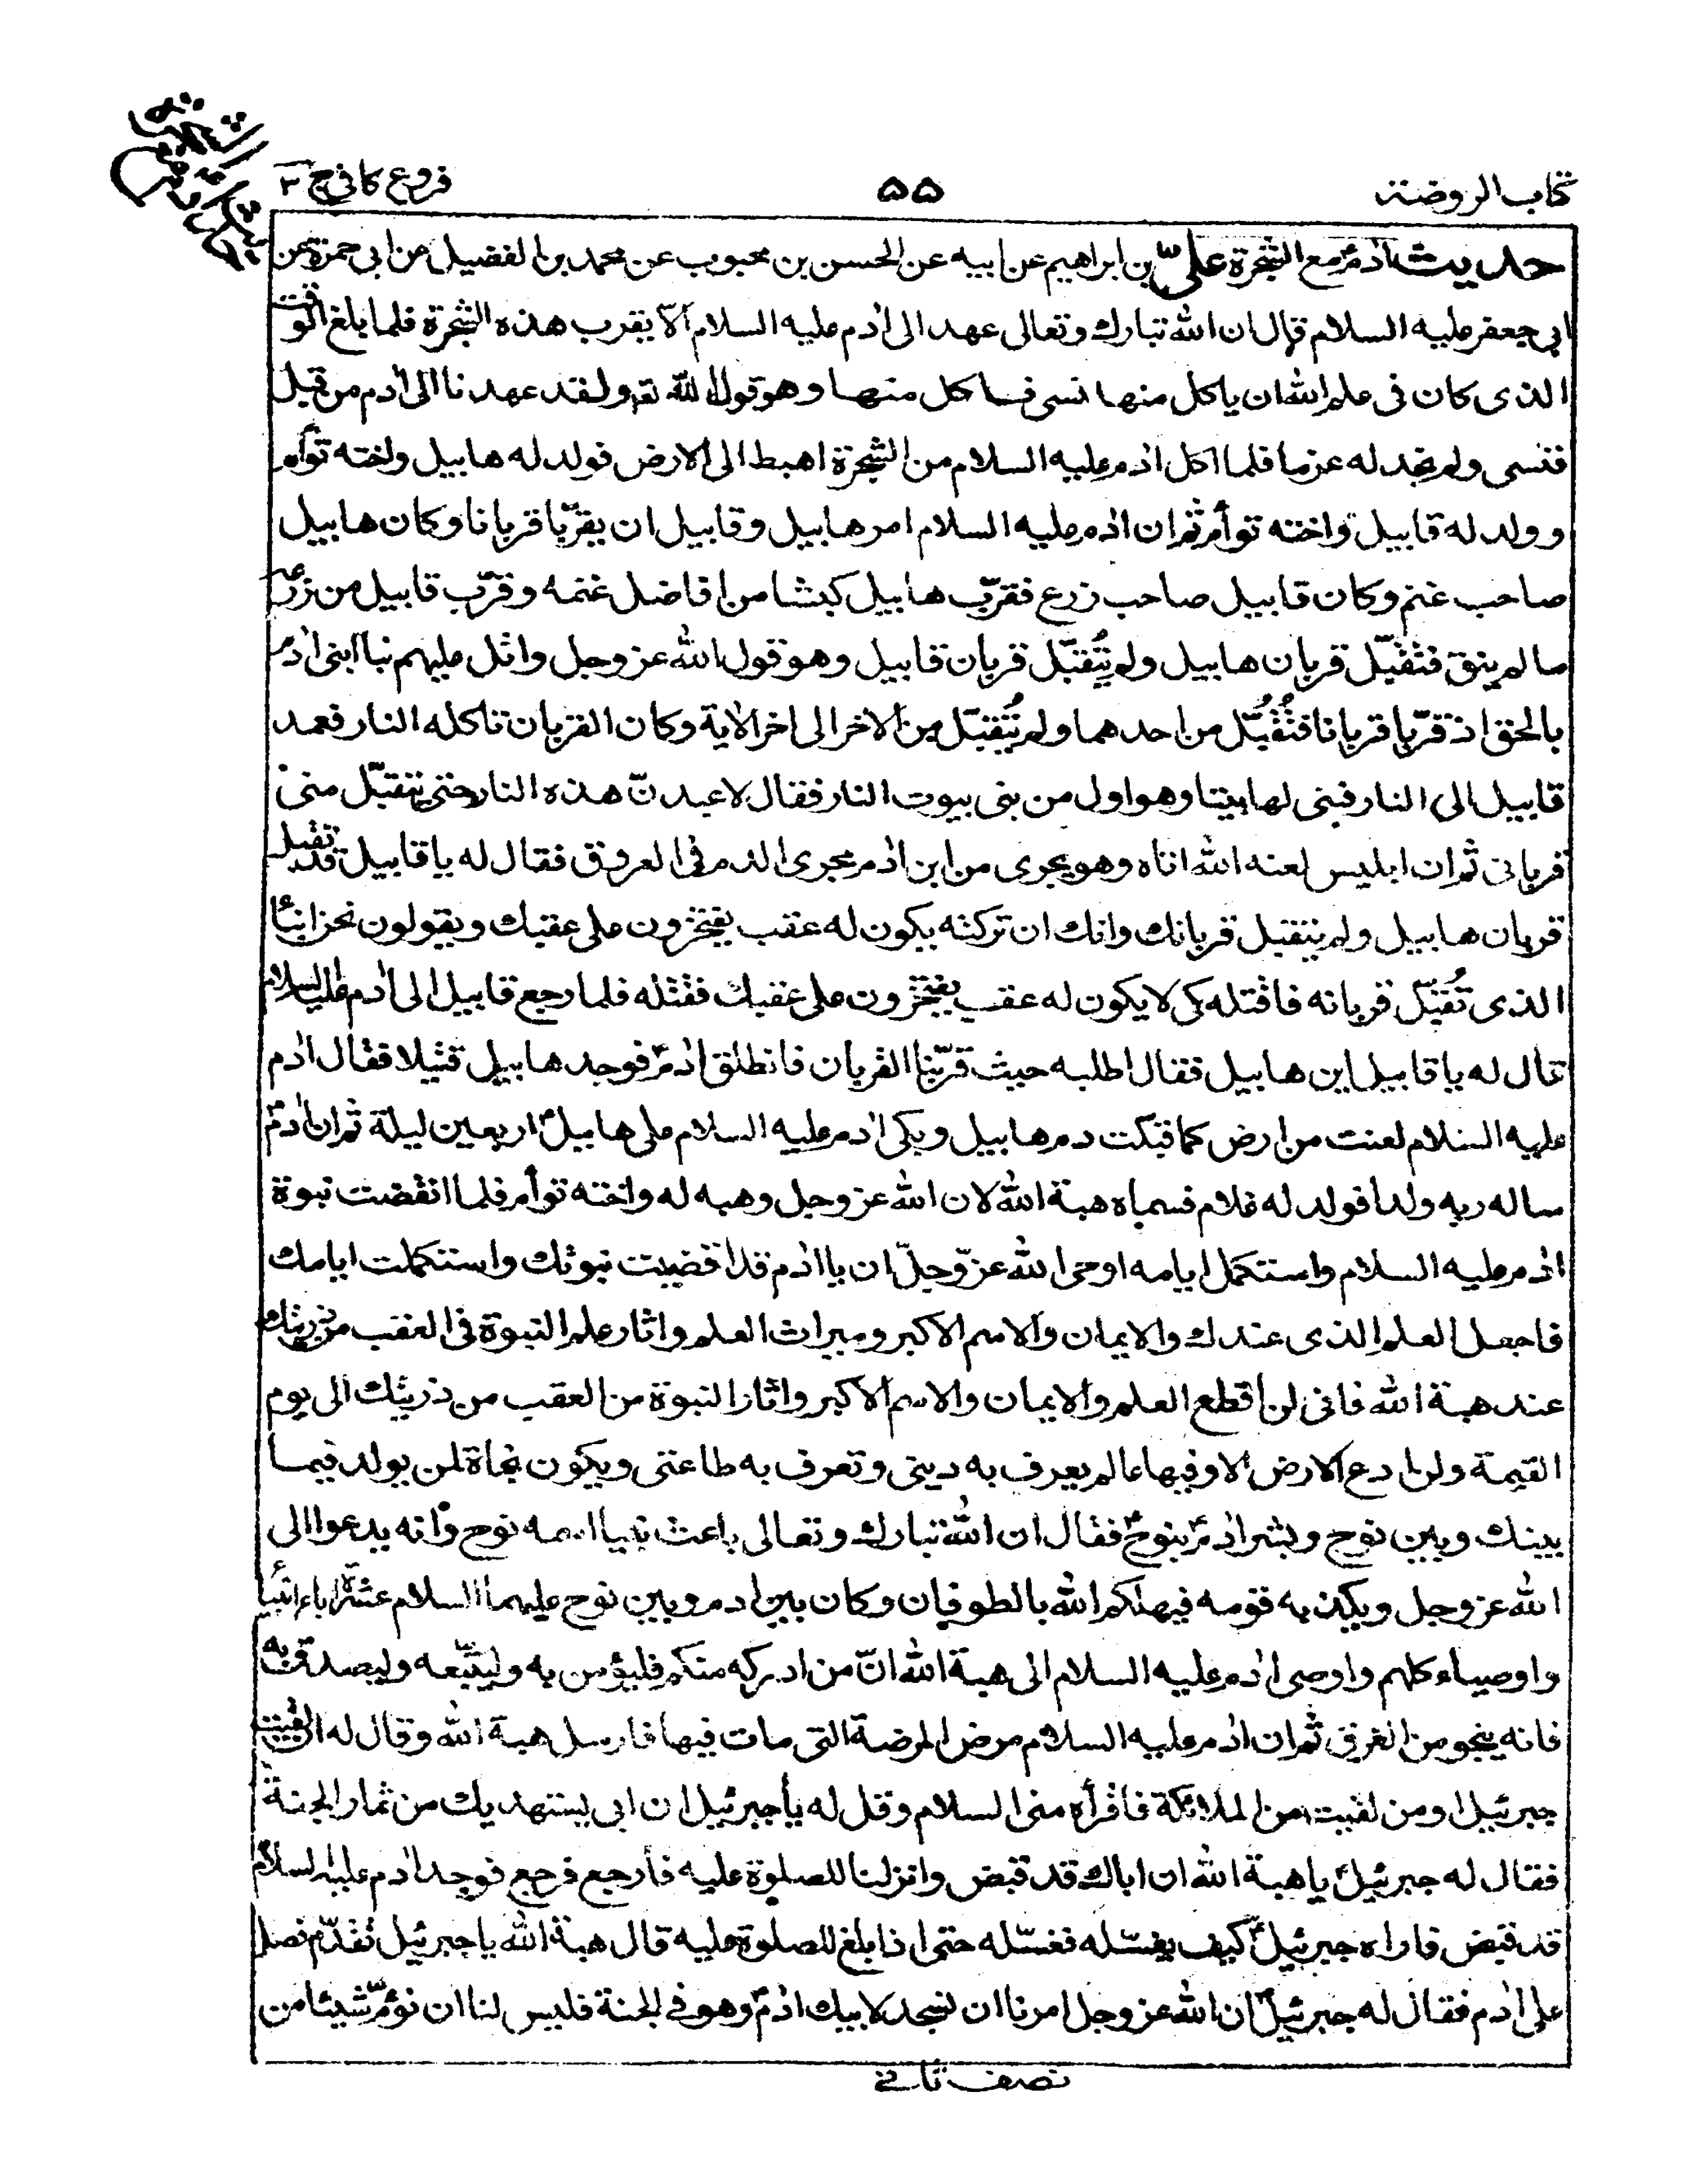 كتاب الروضة
٥٥
فروع كافي ج ٣
حديث ادم مع الشجرة علىّ بن ابراهيم عن ابيه عن الحسن بن محبوب عن محمد بن الفضيل من ابى حمزة عن
ابى جعفر عليه السلام قال ان الله تبارك وتعالى عهد الى ادم عليه السلام الّا يقرب هذه الشجرة فلما بلغ الوقت
الذى كان فى علم الله ان ياكل منها نسى فاكل منها وهو قول الله تعه ولقد عهدنا الى ادم من قبل
فنسى ولم نجد له عزما فلما اكل ادم عليه السلام من الشجرة اهبط الى الارض فولد له هابيل واخته توأم
وولد له قابيل واخته توأم ثم ان ادم عليه السلام امر هابيل وقابيل ان يقرّبا قربانا وكان هابيل
صاحب غنم وكان قابيل صاحب زرع فقرّب هابيل كبشا من افاضل غنمه وقرّب قابيل من زرعه
ما لم ينق فتقبّل قربان هابيل ولم يُتقبّل قربان قابيل وهو قول الله عز وجل واتل عليهم نبأ ابنى ادم
بالحق اذ قرّبا قربانا فتُقُبّل من احدهما ولم يُتقبّل من الاخر الى اخر الاية وكان القربان تاكله النار فعمد
قابيل الى النار فبنى لها بيتا وهو اول من بنى بيوت النار فقال لاعبدنّ هذه النار حتى يتقبّل منى
قربانى ثم ان ابليس لعنه الله اتاه وهو يجرى من ابن ادم مجرى الدم فى العروق فقال له يا قابيل قد تقبل
قربان هابيل ولم يتقبل قربانك وانك ان تركته يكون له عقب يفتخرون على عقبك ويقولون نحن ابناء
الذى تُقبّل قربانه فاقتله كى لا يكون له عقب يفتخرون على عقبك فقتله فلما رجع قابيل الى ادم عليه السلام
قال له يا قابيل اين هابيل فقال اطلبه حيث قرّبنا القربان فانطلق ادمؑ فوجد هابيل قتيلا فقال ادم
عليه السلام لعنت من ارض كما قبلت دم هابيل وبكى ادم عليه السلام على هابيل اربعين ليلة ثم ان ادمؑ
سال ربه ولدا فولد له غلام فسماه هبة الله لان الله عز وجل وهبه له واخته توأم فلما انقضت نبوة
ادم عليه السلام واستكمل ايامه اوحى الله عزّ وجلّ ان يا ادم قد انقضيت نبوتك واستكملت ايامك
فاجعل العلم الذى عندك والايمان والاسم الاكبر وميراث العلم واثار علم النبوة فى العقب من ذريتك
عند هبة الله فانى لن اقطع العلم والايمان والاسم الاكبر واثار النبوة من العقب من ذريتك الى يوم
القيمة ولن ادع الارض الا وفيها عالم يعرف به دينى وتعرف به طاعتى ويكون نجاة لمن يولد فيما
بينك وبين نوح وبشر ادمؑ بنوحؑ فقال ان الله تبارك وتعالى باعث نبيا اسمه نوح وانه يدعوا الى
الله عز وجل ويكذبه قومه فيهلكهم الله بالطوفان وكان بين ادم وبين نوح عليهما السلام عشرة اباء انبياء
واوصياء كلهم واوصى ادم عليه السلام الى هبة الله انّ من ادركه منكم فليؤمن به وليتّبعه وليصدق به
فانه ينجو من الغرق ثم ان ادم عليه السلام مرض المرضة التى مات فيها فارسل هبة الله وقال له ان لقيت
جبرئيل او من لقيت من الملائكة فاقرأه منى السلام وقل له يا جبرئيل ان ابى يستهديك من ثمار الجنة
فقال له جبرئيلؑ يا هبة الله ان اباك قد قبض وانزلنا للصلوة عليه فارجع فرجع فوجد ادم عليه السلام
قد قبض فاراه جبرئيلؑ كيف يغسّله فغسّله حتى اذا بلغ للصلوة عليه قال هبة الله يا جبرئيل تقدّم فصل
على ادم فقال له جبرئيلؑ ان الله عز وجل امرنا ان نسجد لابيك ادمؑ وهو فى الجنة فليس لنا ان نؤمّ شيئا من
نصف ثانى